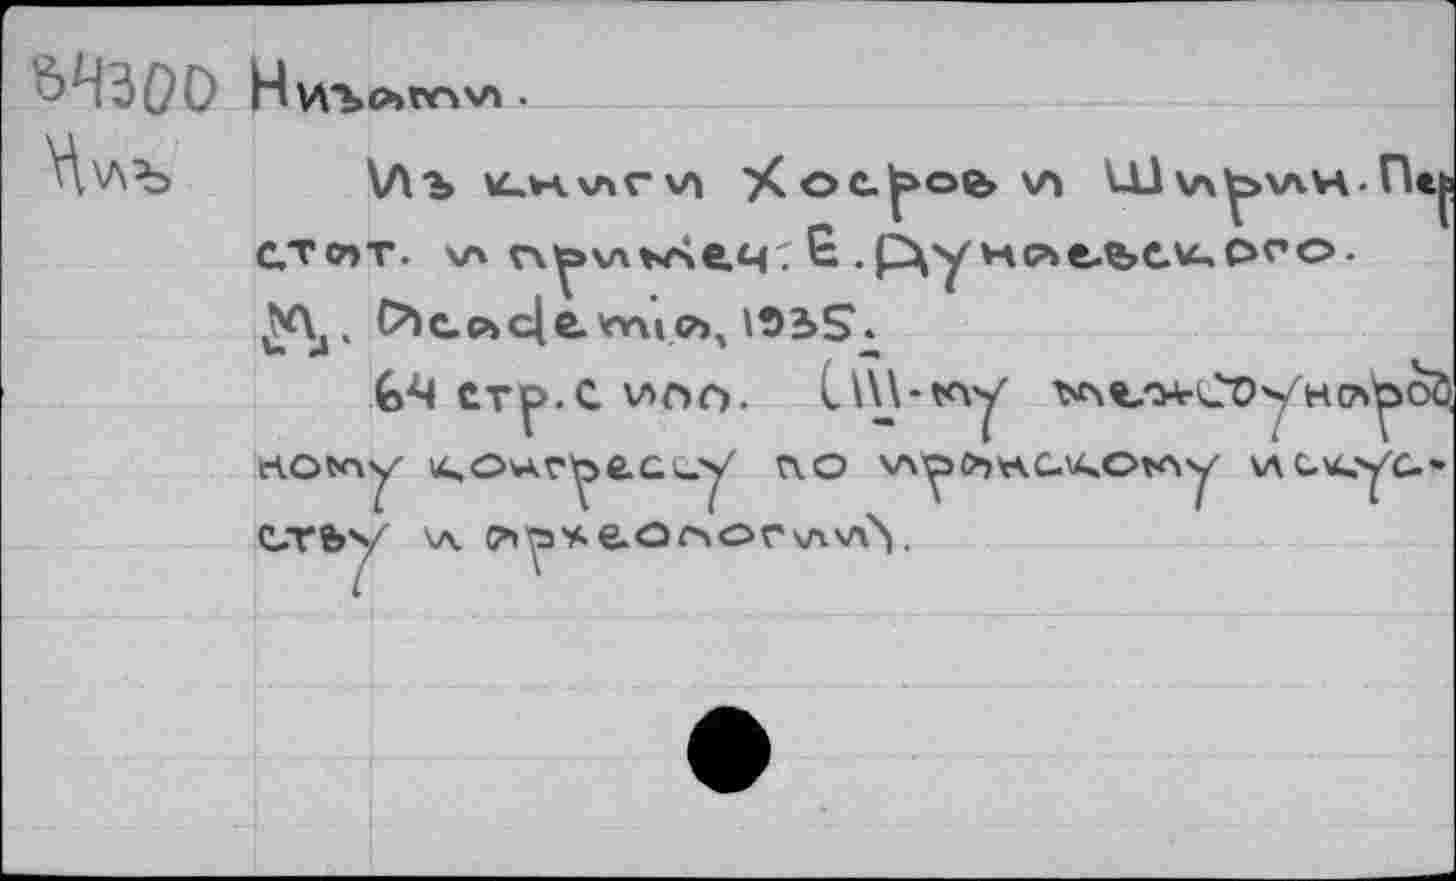 64300 Низами.
Низ
Из книги Хосров и Ширин. Пер
стат. и примеч. Е. Дунаевского.
М., Academia, 1935.
64 стр. с илл. (III-му международ
ному конгрессу по иранскому искус-
ству и археологии).